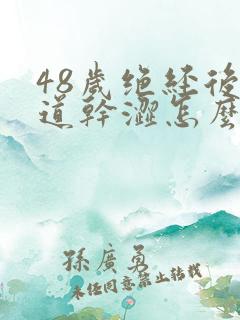 48歲绝经後
道幹澀怎麽
孫廣勇
未经同意禁止转载